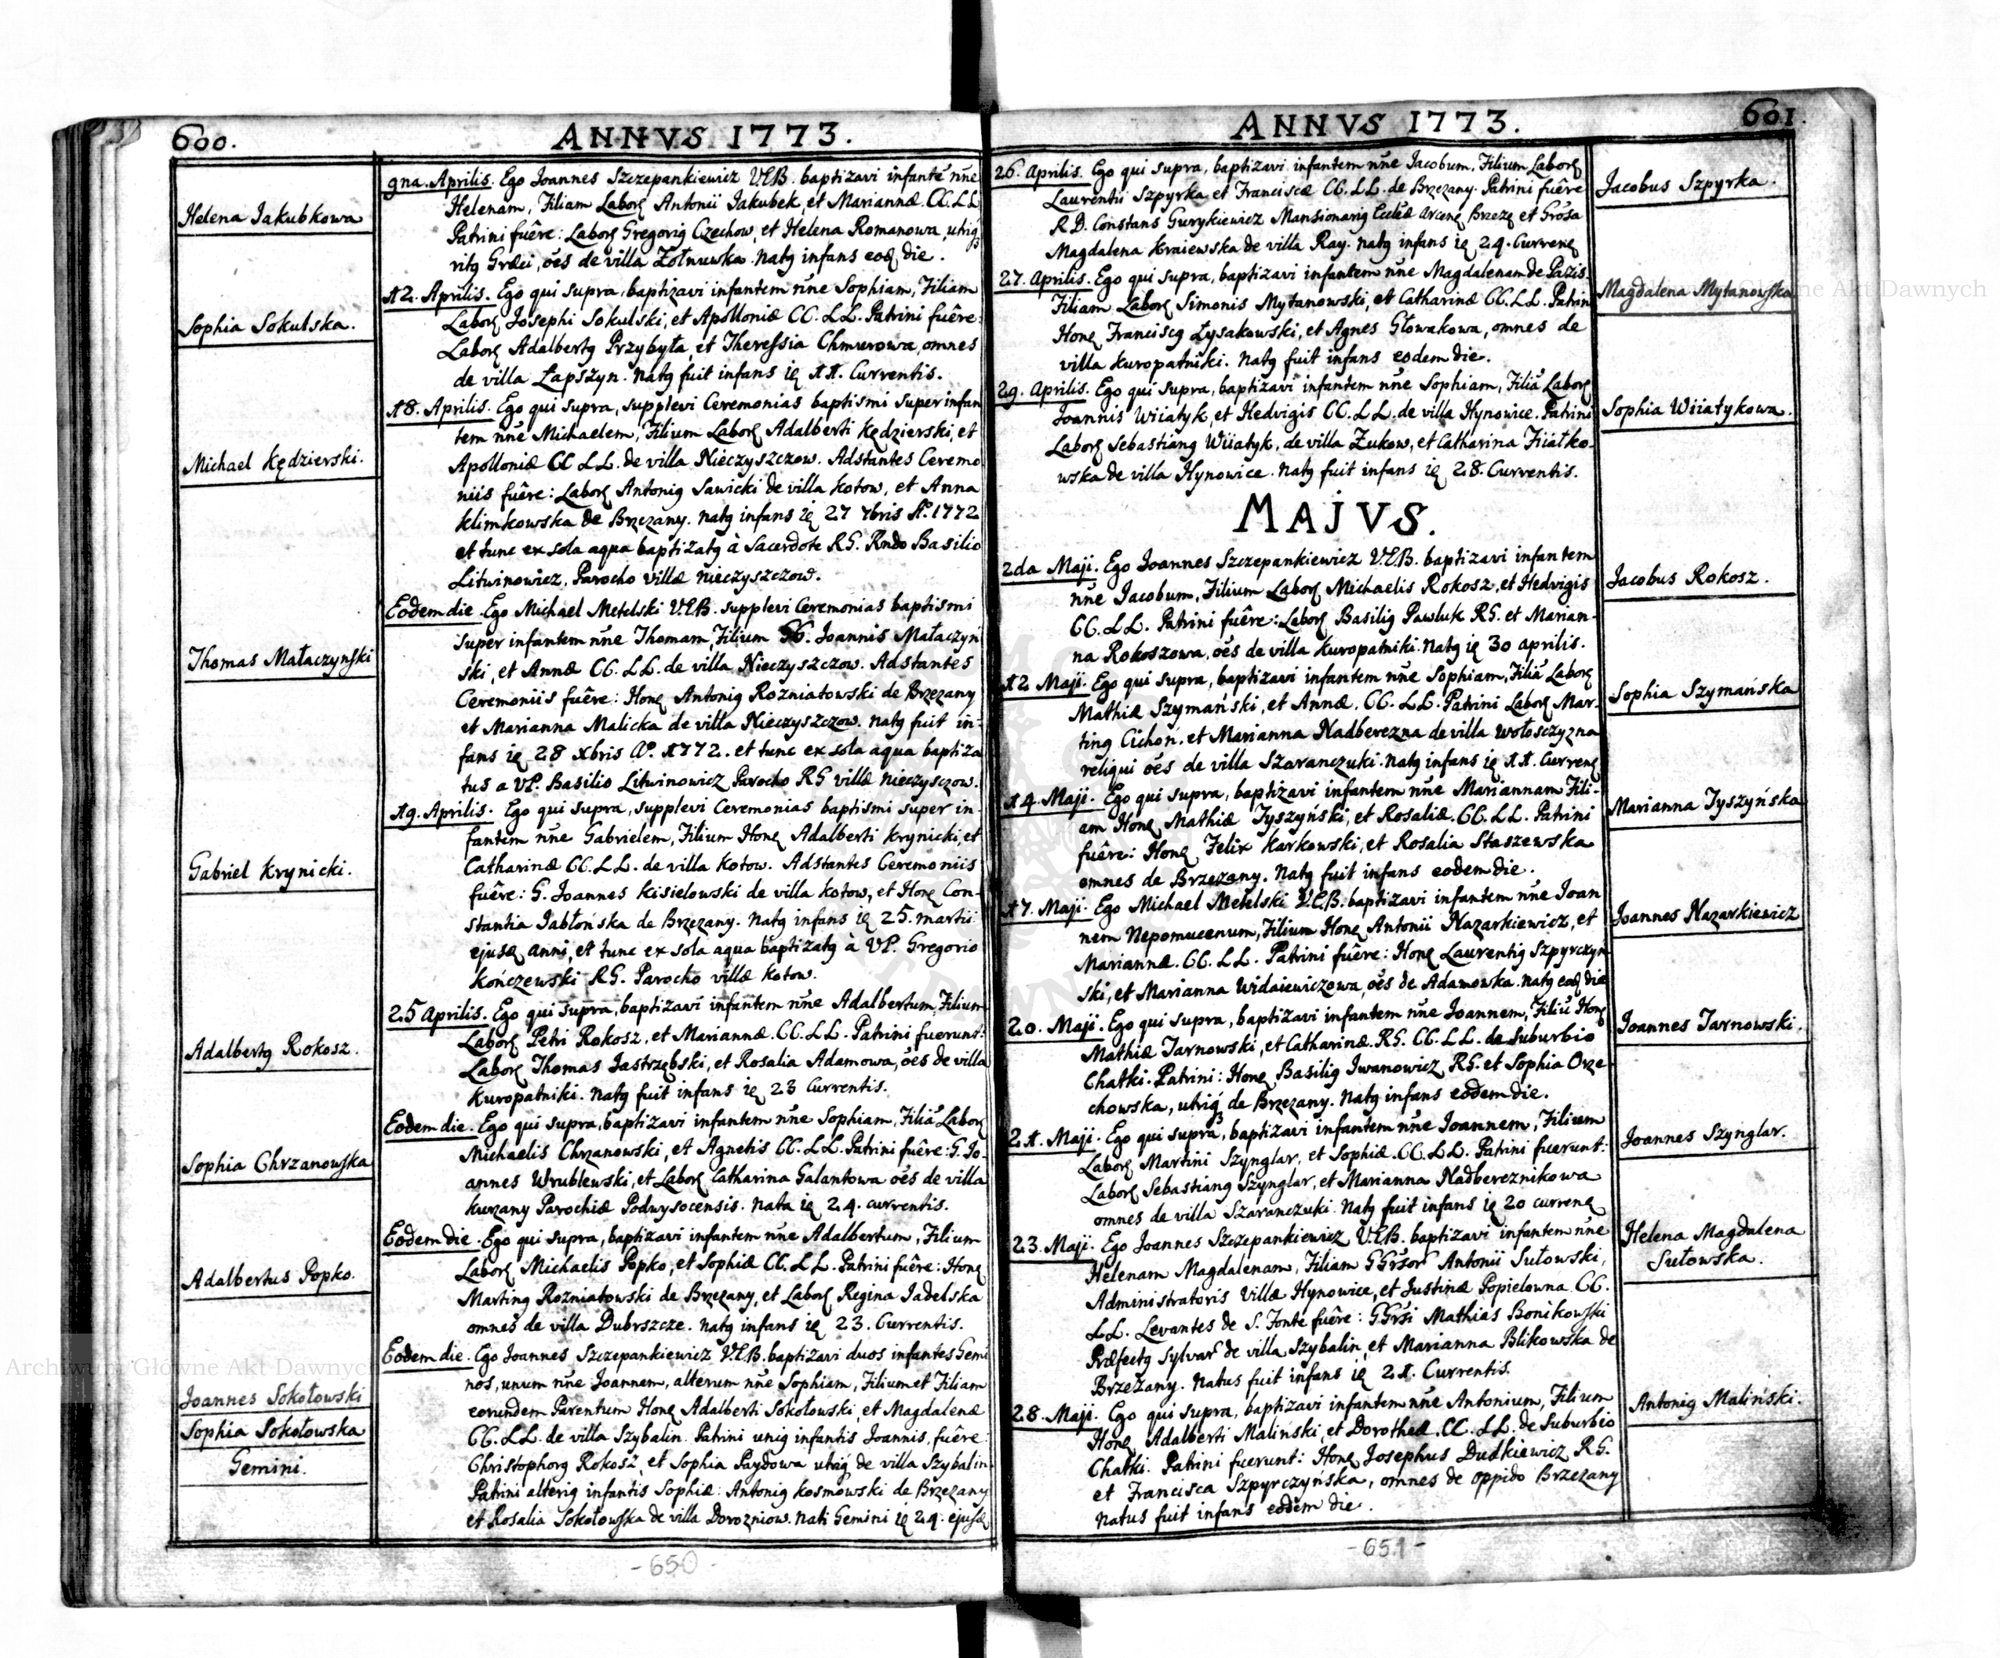 600.
ANNVS 1773.
Helena Jakubkowa
Sophia Sokulska.
Michael Kędzierski.
Thomas Małaczynski
Gabriel Krynicki.
Adalbertq Rokosz.
Sophia Chrzanowska
Adalbertus Popko.
Joannes Sokołowski
Sophia Sokołowska
Gemini.
9na. Aprilis. Ego Joannes Szczepankiewicz V.C.B. baptizavi infantē nn̄e
Helenam, Filiam Labor Antonii Jakubek, et Mariannæ CC. LL.
Patrini fuêre: Labor Gregoriq Czechow, et Helena Romanowa, utriq
ritq Græci, ōes de villa Żołnuwka. Natq infans eod die.
12. Aprilis. Ego qui supra, baptizavi infantem nn̄e Sophiam, Filiam
Labor Josephi Sokulski, et Apolloniæ CC. LL. Patrini fuêre:
Labor Adalbertq Przybyła, et Theressia Chmurowa, omnes
de villa Łapszyn. Natq fuit infans ię 11. Currentis.
18. Aprilis. Ego qui supra, supplevi Ceremonias baptismi super infan
tem nn̄e Michaelem, Filium Labor Adalberti Kędzierski, et
Apolloniæ CC LL. de villa Nieczyszczow. Adstantes Ceremo
niis fuêre: Labor Antoniq Sawicki de villa Kotow, et Anna
Klimkowska de Brzezany. Natq infans ię 27 7bris Aº. 1772
et tunc ex sola aqua baptizatq à Sacerdote R.G. Rndo Basilio
Litwinowicz, Parocho villæ Nieczyszczow.
Eodem die. Ego Michael Metelski V.C.B. supplevi Ceremonias baptismi
super infantem nn̄e Thomam, Filium GG. Joannis Małaczyń
ski, et Annæ CC. LL. de villa Nieczyszczow. Adstantes
Ceremoniis fuêre: Hon Antoniq Rozniatowski de Brzezany
et Marianna Malicka de villa Nieczyszczow. Natq fuit in-
fans ię 28 Xbris Aº. 1772. et tunc ex sola aqua baptiza
tus a VP. Basilio Litwinowicz Parocho RG villæ Nieczyszow.
19. Aprilis. Ego qui supra, supplevi Ceremonias baptismi super in-
fantem nn̄e Gabrielem, Filium Hon Adalberti Krynicki, et
Catharinæ CC. LL. de villa Kotow. Adstantes Ceremoniis
fuêre: G. Joannes Kisielowski de villa Kotow, et Hon Con-
stantia Jabłońska de Brzezany. Natq infans ię 25. martii
ejusd anni, et tunc ex sola aqua baptizatq à VP. Gregorio
Kończewski R.G. Parocho villæ Kotow.
25 Aprilis. Ego qui supra, baptizavi infantem nn̄e Adalbertum, Filium
Labor Petri Rokosz, et Mariannæ CC. LL. Patrini fuerunt:
Labor Thomas Jastrzębski, et Rosalia Adamowa, ōes de villa
Kuropatniki. Natq fuit infans ię 23 Currentis.
Eodem die. Ego qui supra, baptizavi infantem nn̄e Sophiam, Filiā Labor
Michaelis Chrzanowski, et Agnetis CC. LL. Patrini fuêre: G. Jo-
annes Wrublewski, et Labor Catharina Galantowa ōes de villa
Kurzany Parochiæ Podwysocensis. Nata ię 24. currentis.
Eodem die. Ego qui supra, baptizavi infantem nn̄e Adalbertum, Filium
Labor Michaelis Popko, et Sophiæ CC. LL. Patrini fuêre: Hon
Martinq Rozniatowski de Brzezany, et Labor Regina Jadelska
omnes de villa Dubrszcze. Natq infans ię 23. Currentis.
Eodem die. Ego Joannes Szczepankiewicz V.C.B. baptizavi duos infantes Gemi
nos, unum nn̄e Joannem, alterum nn̄e Sophiam, Filium et Filiam
eorundem Parentum Hon Adalberti Sokołowski, et Magdalenæ
CC. LL. de villa Szybalin. Patrini uniq infantis Joannis, fuêre:
Christophorq Rokosz, et Sophia Paydowa utriq de villa Szybalin
Patrini alteriq infantis Sophiæ: Antoniq Kosmowski de Brzezany
et Rosalia Sokołowska de villa Dorozniow. Nati Gemini ię 24. ejusd
-650-
601.
ANNVS 1773.
26. Aprilis. Ego qui supra, baptizavi infantem nn̄e Jacobum, Filium Labor
Laurentii Szpyrka, et Franciscæ CC. LL. de Brzezany. Patrini fuêre
R.D. Constans Gurykiewicz Mansionariq Eccl̄æ Arcen Brzez et Grōsa
Magdalena Kraiewska de villa Ray. Natq infans ię 24. Curren
27. Aprilis. Ego qui supra, baptizavi infantem nn̄e Magdalenam de Pazis
Filiam Labor Simonis Mytanowski, et Catharinæ CC. LL. Patrin
Hon Franciscq Łysakowski, et Agnes Głowakowa, omnes de
villa Kuropatniki. Natq fuit infans eodem die.
29. Aprilis. Ego qui supra, baptizavi infantem nn̄e Sophiam, Filiā Labor
Joannis Wiiatyk, et Hedvigis CC. LL. de villa Hynowice. Patrini
Labor Sebastianq Wiiatyk, de villa Zukow, et Catharina Fiiałko-
wska de villa Hynowice. Natq fuit infans ię 28. Currentis.
MAJVS.
2da Maji. Ego Joannes Szczepankiewicz V.C.B. baptizavi infantem
nn̄e Jacobum, Filium Labor Michaelis Rokosz, et Hedvigis
CC. LL. Patrini fuêre: Labor Basiliq Pawluk R.G. et Marian-
na Rokoszowa, ōes de villa Kuropatniki. Natq ię 30 aprilis.
12. Maji. Ego qui supra, baptizavi infantem nn̄e Sophiam, Filiā Labor
Mathiæ Szymański, et Annæ. CC. LL. Patrini Labor Mar-
tinq Cichoń. et Marianna Nadberezna de villa Wołosczyzna
reliqui ōes de villa Szaranczuki. Natq infans ię 11. Curren
14. Maji. Ego qui supra, baptizavi infantem nn̄e Mariannam Fili-
am Hon Mathiæ Tyszyński, et Rosaliæ. CC. LL. Patrini
fuêre: Hon Felix Karkowski, et Rosalia Staszewska
omnes de Brzezany. Natq fuit infans eodem die.
17. Maji. Ego Michael Metelski V.C.B. baptizavi infantem nn̄e Joan
nem Nepomucenum, Filium Hon Antonii Nazarkiewicz, et
Mariannæ. CC. LL. Patrini fuêre: Hon Laurentiq Szpyrczyn
ski, et Marianna Widaiewiczowa, ōes de Adamowka. Natq eod die
20. Maji. Ego qui supra, baptizavi infantem nn̄e Joannem, Filiū Hon
Mathiæ Tarnowski, et Catharinæ. RG. CC. LL. de Suburbio
Chatki. Patrini: Hon Basiliq Iwanowicz RG. et Sophia Orze-
chowska, utriq de Brzezany. Natq infans eodem die.
21. Maji. Ego qui supra, baptizavi infantem nn̄e Joannem, Filium
Labor Martini Szynglar, et Sophiæ. CC. LL. Patrini fuerunt:
Labor Sebastianq Szynglar, et Marianna Nadbereznikowa
omnes de villa Szaranczuki. Natq fuit infans ię 20 curren
23. Maji. Ego Joannes Szczepankiewicz V.C.B. baptizavi infantem nn̄e
Helenam Magdalenam, Filiam GGrsor Antonii Sułowski,
Administratoris Villæ Hynowice, et Justinæ Popielowna CC.
LL. Levantes de S. Fonte fuêre: GGrsi Mathias Bonikowski
Præfectq Sylvar de villa Szybalin, et Marianna Blikowska de
Brzezany. Natus fuit infans ię 21. Currentis.
28. Maji. Ego qui supra, baptizavi infantem nn̄e Antonium, Filium
Hon Adalberti Maliński, et Dorotheæ. CC. LL. de Suburbio
Chatki. Patrini fuerunt: Hon Josephus Dudkiewicz R.G.
et Francisca Szpyrczyńska, omnes de oppido Brzezany
natus fuit infans eodem die.
Jacobus Szpyrka.
Magdalena Mytanowska
Sophia Wiiatykowa.
Jacobus Rokosz.
Sophia Szymańska
Marianna Tyszyńska
Joannes Nazarkiewicz
Joannes Tarnowski.
Joannes Szynglar.
Helena Magdalena
Sułowska.
Antoniq Maliński.
-651-
Archiwum Główne Akt Dawnych